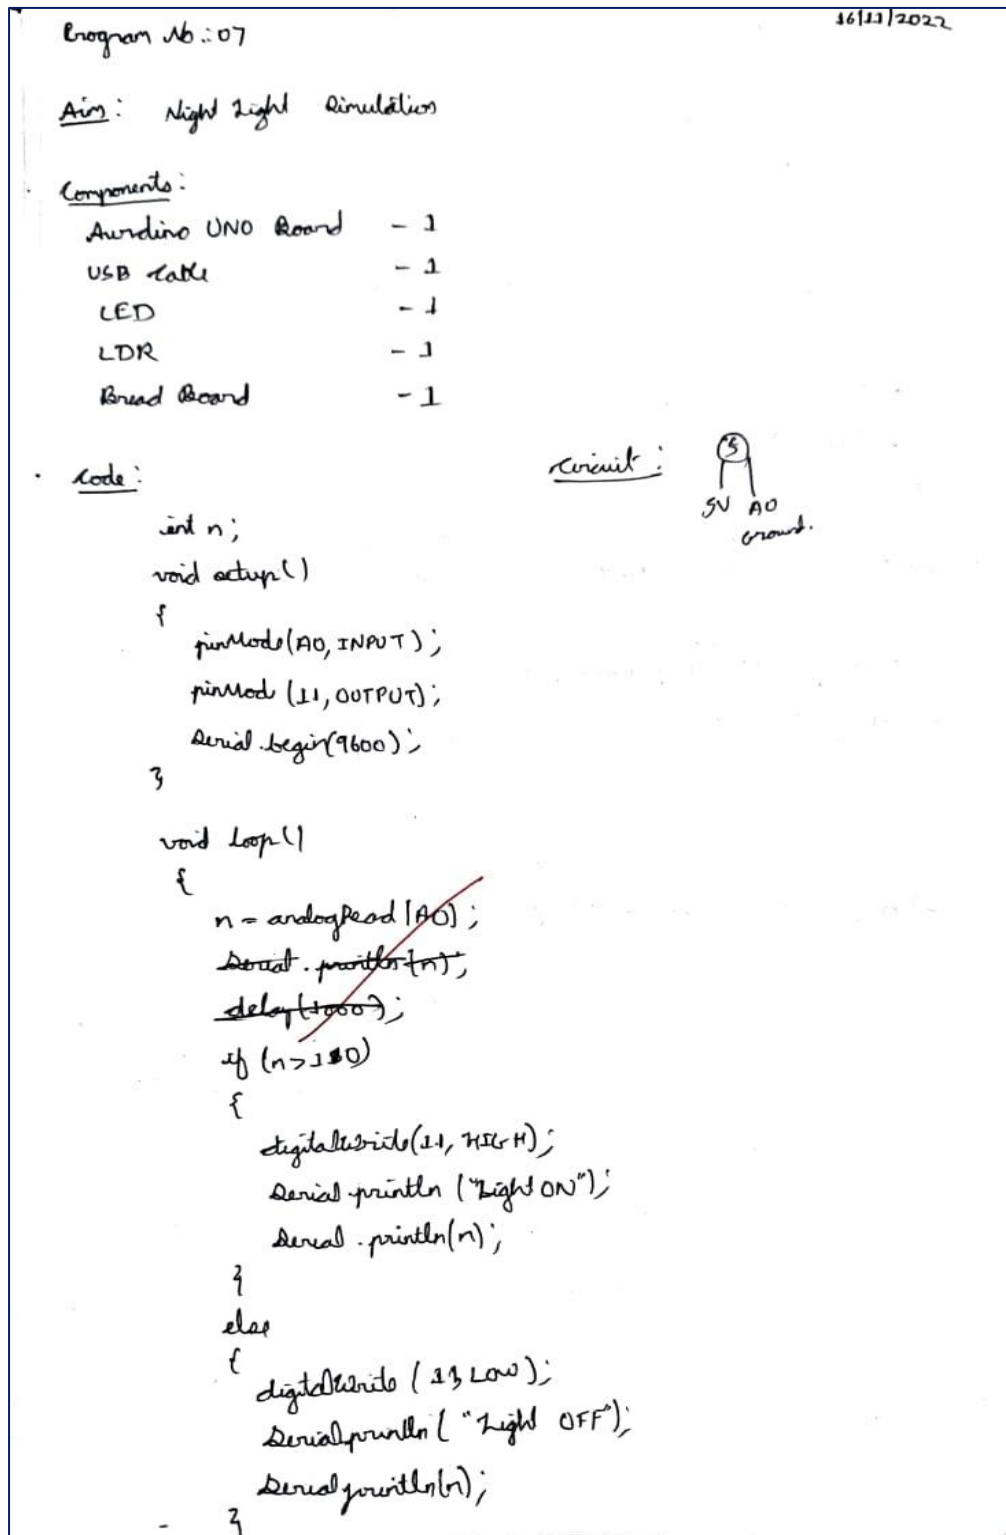 16/11/2022
Program No.: 07
Aim: Night Light Simulation
Components:
Aurdino UNO Board - 1
USB Cable - 1
LED - 1
LDR - 1
Bread Board - 1
Code:
Circuit:
5V A0
Ground.
int n;
void setup()
{
pinMode(A0, INPUT);
pinMod (11, OUTPUT);
Serial.begin(9600);
}
void loop()
{
n = analogRead (A0);
Serial.println(n);
delay(1000);
if (n>
{
digitalWrite(11, HIGH);
Serial.println ("Light ON");
Serial.println(n);
}
else
{
digitalWrite ( LOW);
Serialprintln( "Light OFF");
Serialprintln(n);
}